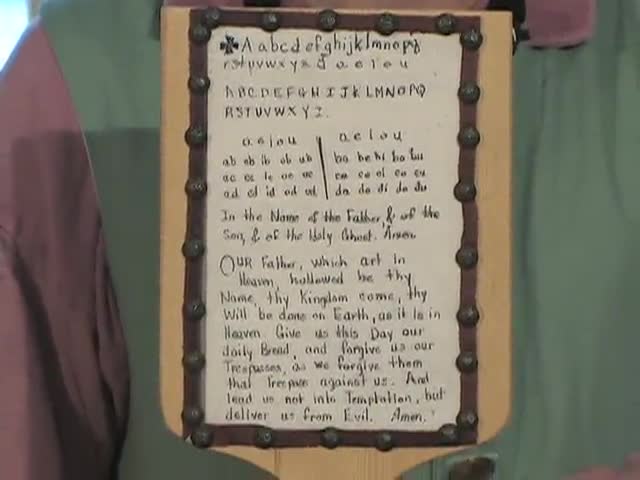 ✠ A a b c d e f g h i j k l m n o p q
r s t u v w x y z & a e i o u
A B C D E F G H I J K L M N O P Q
R S T U V W X Y Z.
a e i o u a e i o u
ab eb ib ob ub ba be bi bo bu
ac ec ic oc uc ca ce ci co cu
ad ed id od ud da de di do du
In the Name of the Father, & of the
Son, & of the Holy Ghost. Amen.
OUR Father, which art in
Heaven, hallowed be thy
Name, thy Kingdom come, thy
Will be done on Earth, as it is in
Heaven. Give us this Day our
daily Bread, and forgive us our
Trespasses, as we forgive them
that Trespass against us. And
lead us not into Temptation, but
deliver us from Evil. Amen.